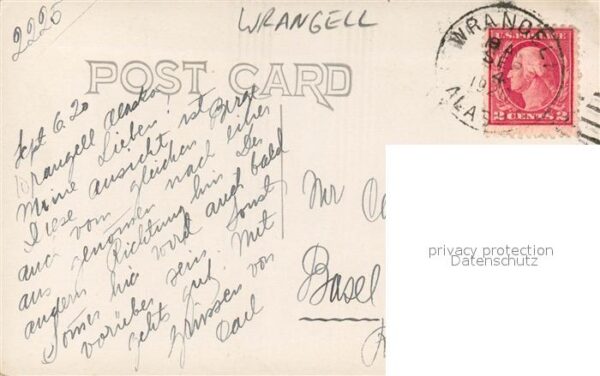 2225
WRANGELL
WRANGELL
ALAS
U.S. POSTAGE
2 CENTS 2
POST CARD
Sept 6. 20
Wrangell Alaska
Meine Lieben!
Diese aussicht ist
auch vom gleichen Berge
aus genommen nach einer
andern Richtung hin. Der
Somer hier wird auch bald
vorüber sein. Sonst
gehts gut. Mit
Grüssen von
Mr
Basel
privacy protection
Datenschutz